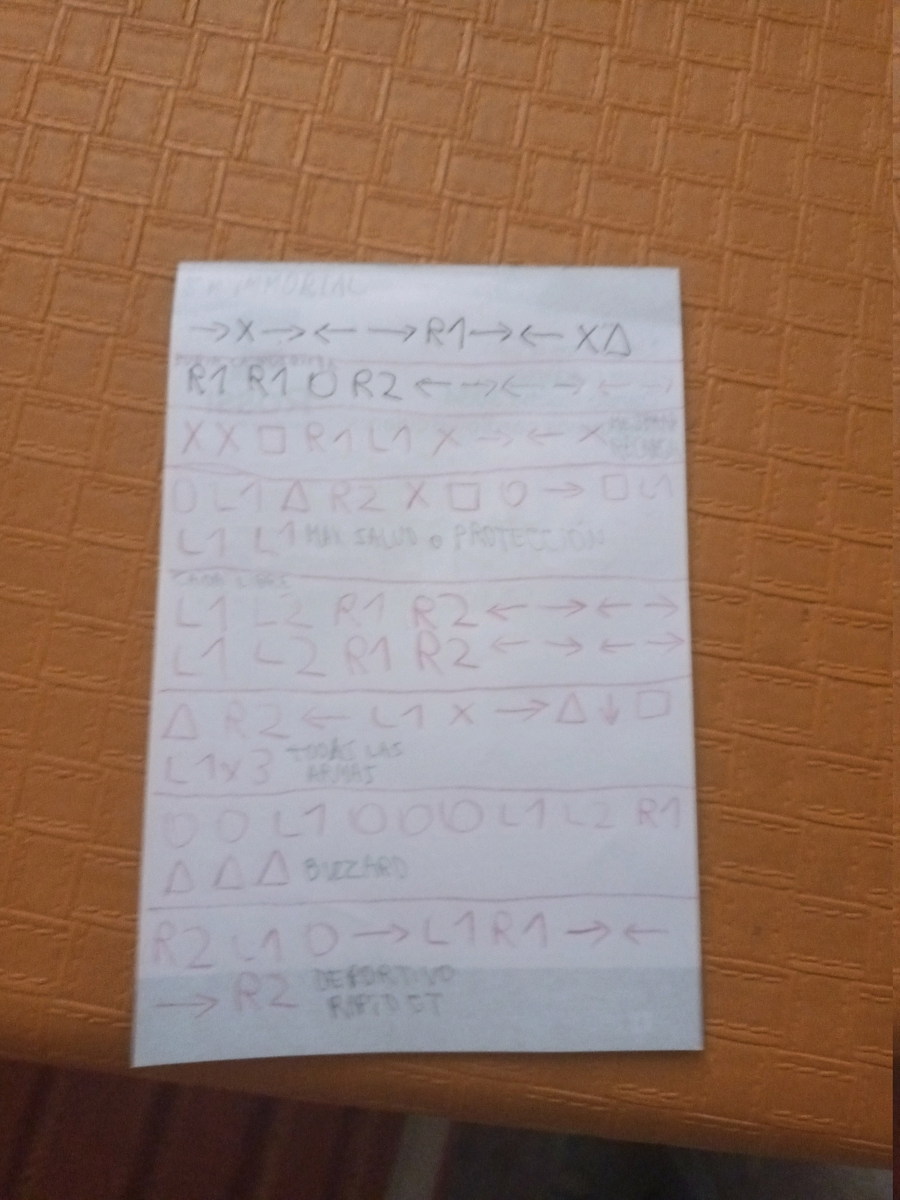 INMORTAL
→ X → ← → R1 → ← X △
R1 R1 O R2 ← → ← → ← →
X X □ R1 L1 X → ← X
O L1 △ R2 X □ O → □ L1
L1 L1 MAX SALUD O PROTECCIÓN
L1 L2 R1 R2 ← → ← →
L1 L2 R1 R2 ← → ← →
△ R2 ← L1 X → △ ↓ □
L1x3 TODAS LAS
ARMAS
O O L1 O O O L1 L2 R1
△ △ △ BUZZARD
R2 L1 O → L1 R1 → ←
→ R2 DEPORTIVO